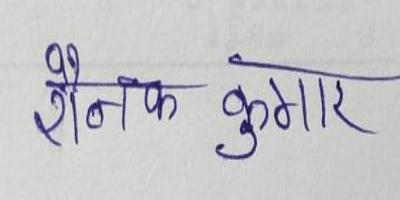 रौनक कुमार